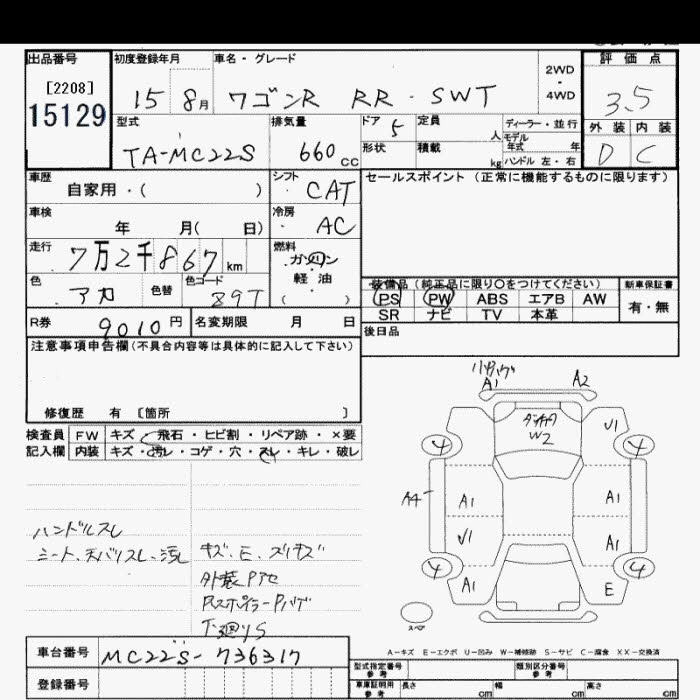 出品番号 初度登録年月 車名・グレード 2WD - 4WD 評価点
[2208] 15 8月 ワゴンR RR・SWT 3.5
15129 型式 排気量 ドア 定員 ディーラー・並行 外装 内装
TA-MC22S 660cc 5 人 モデル年式 年 D C
形状 積載 kg ハンドル 左・右
車歴 自家用・( ) シフト CAT セールスポイント(正常に機能するものに限ります)
車検 年 月( 日) 冷房 AC
走行 7万2千867km 燃料 ガソリン・軽油 ( )
色 アカ 色替 色コード Z9T
装備品(純正品に限り○をつけてください) 新車保証書
PS PW ABS エアB AW 有・無
SR ナビ TV 本革
R券 9010円 名変期限 月 日 後日品
注意事項申告欄(不具合内容等は具体的に記入して下さい)
修復歴 有 [箇所 ]
検査員 FW キズ・飛石・ヒビ割・リペア跡・×要
記入欄 内装 キズ・汚レ・コゲ・穴・スレ・キレ・破レ
A1 A2
W2 U1
4 4
A4 A1 A1
U1 A1
4 4
A1 E
ハンドルスレ
シート、天バリスレ・汚レ
キズ、E、スリキズ
外装Pアセ
RスポイラーPハゲ
下廻りS
スペア
A-キズ E-エクボ U-凹み W-補修跡 S-サビ C-腐食 XX-交換済
車台番号 MC22S-736317
型式指定番号 参考 類別区分番号 参考
登録番号 車庫証明用 参考 長さ cm 幅 cm 高さ cm